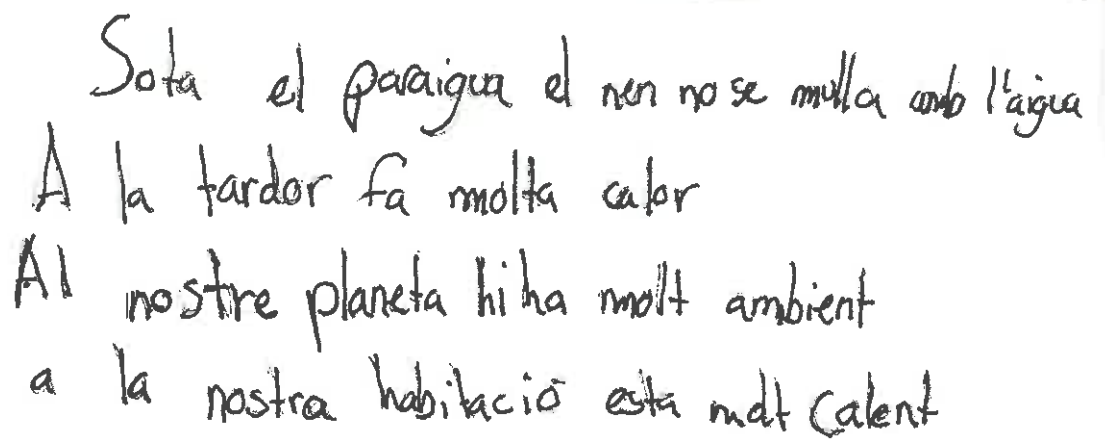 Sota el paraigua el nen no se mulla amb l'aigua
A la tardor fa molta calor
Al nostre planeta hi ha molt ambient
a la nostra habitació esta molt calent